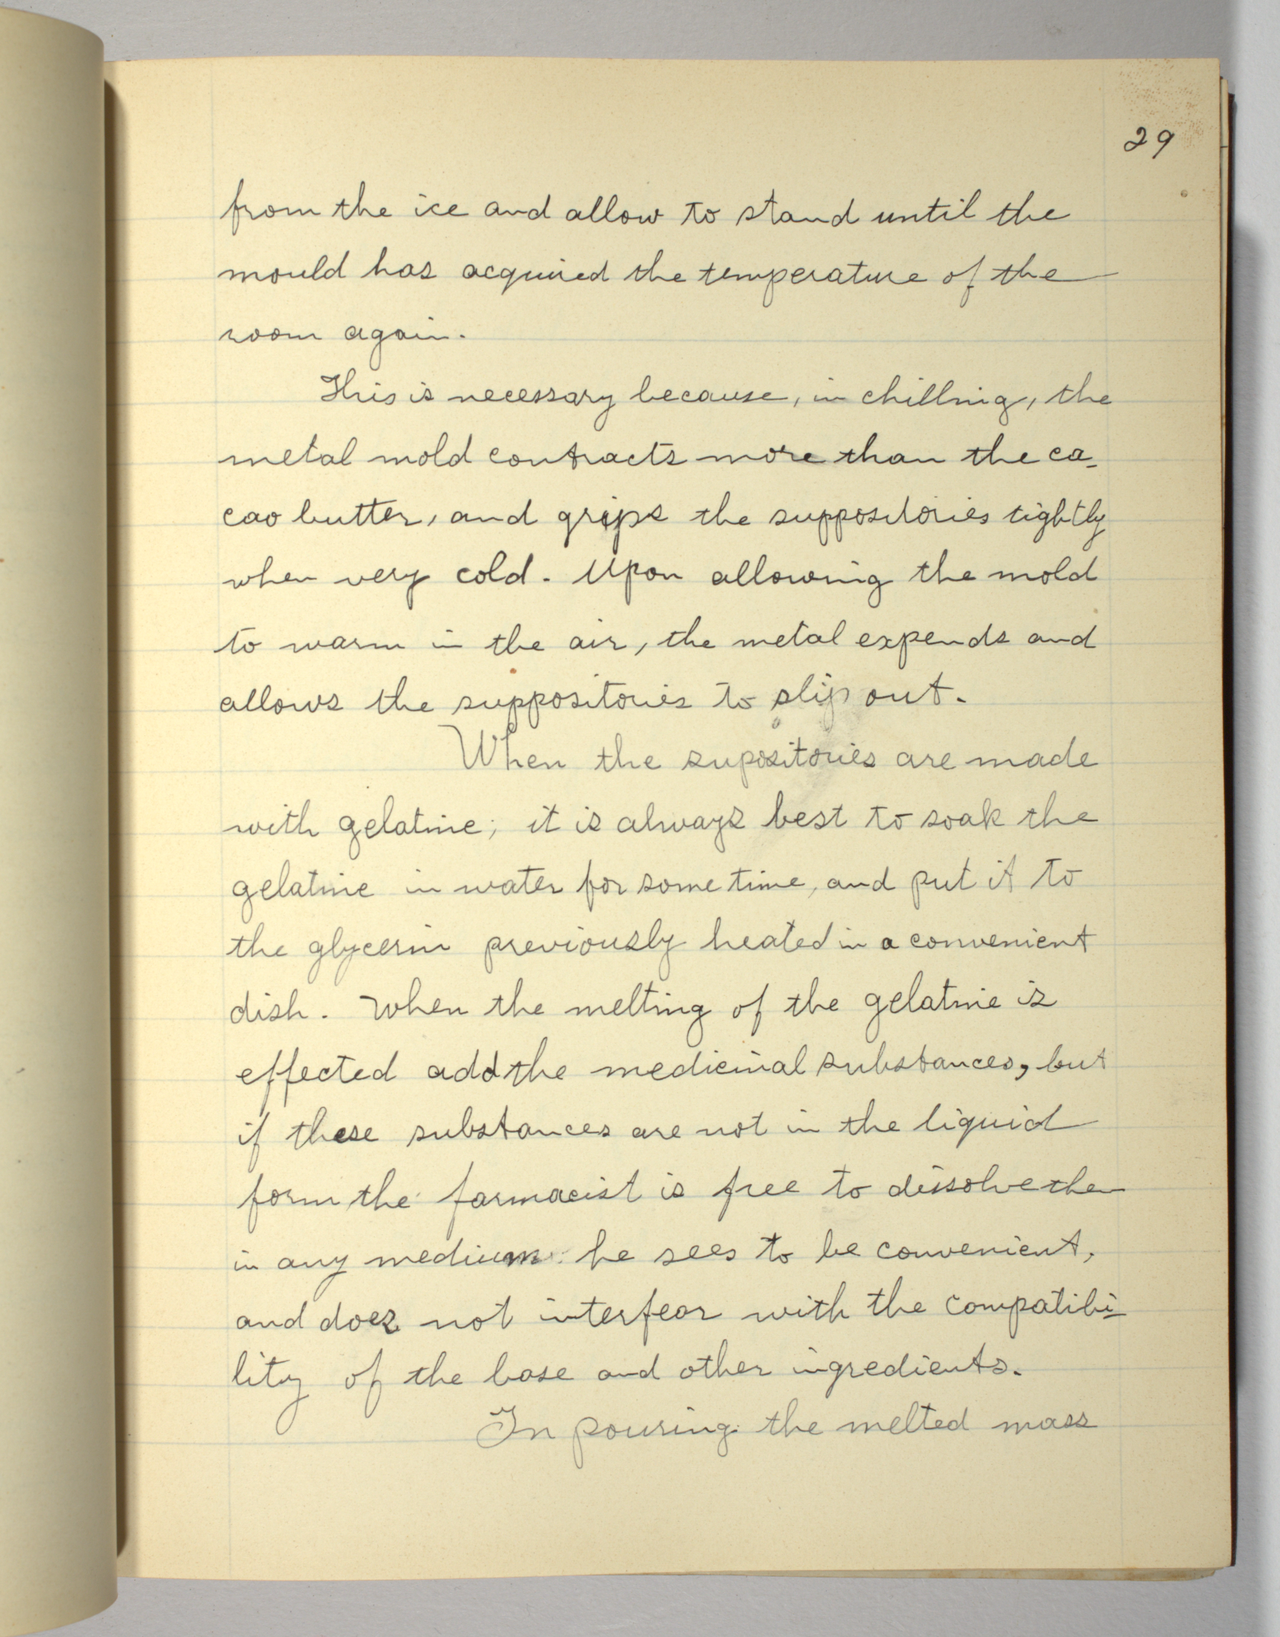 29
from the ice and allow to stand until the
mould has acquired the temperature of the
room again.
This is necessary because, in chillnig, the
metal mold contracts more than the ca-
cao butter, and grips the suppositories tightly
when very cold. Upon allowing the mold
to warm in the air, the metal expends and
allows the suppositories to slip out.
When the supositories are made
with gelatine; it is always best to soak the
gelatine in water for some time, and put it to
the glycerin previously heated in a convenient
dish. When the melting of the gelatine is
effected add the medicinal substances, but
if these substances are not in the liquid
form the farmacist is free to dissolve then
in any medium he sees to be convenient,
and does not interfear with the compatibi-
lity of the base and other ingredients.
In pouring the melted mass